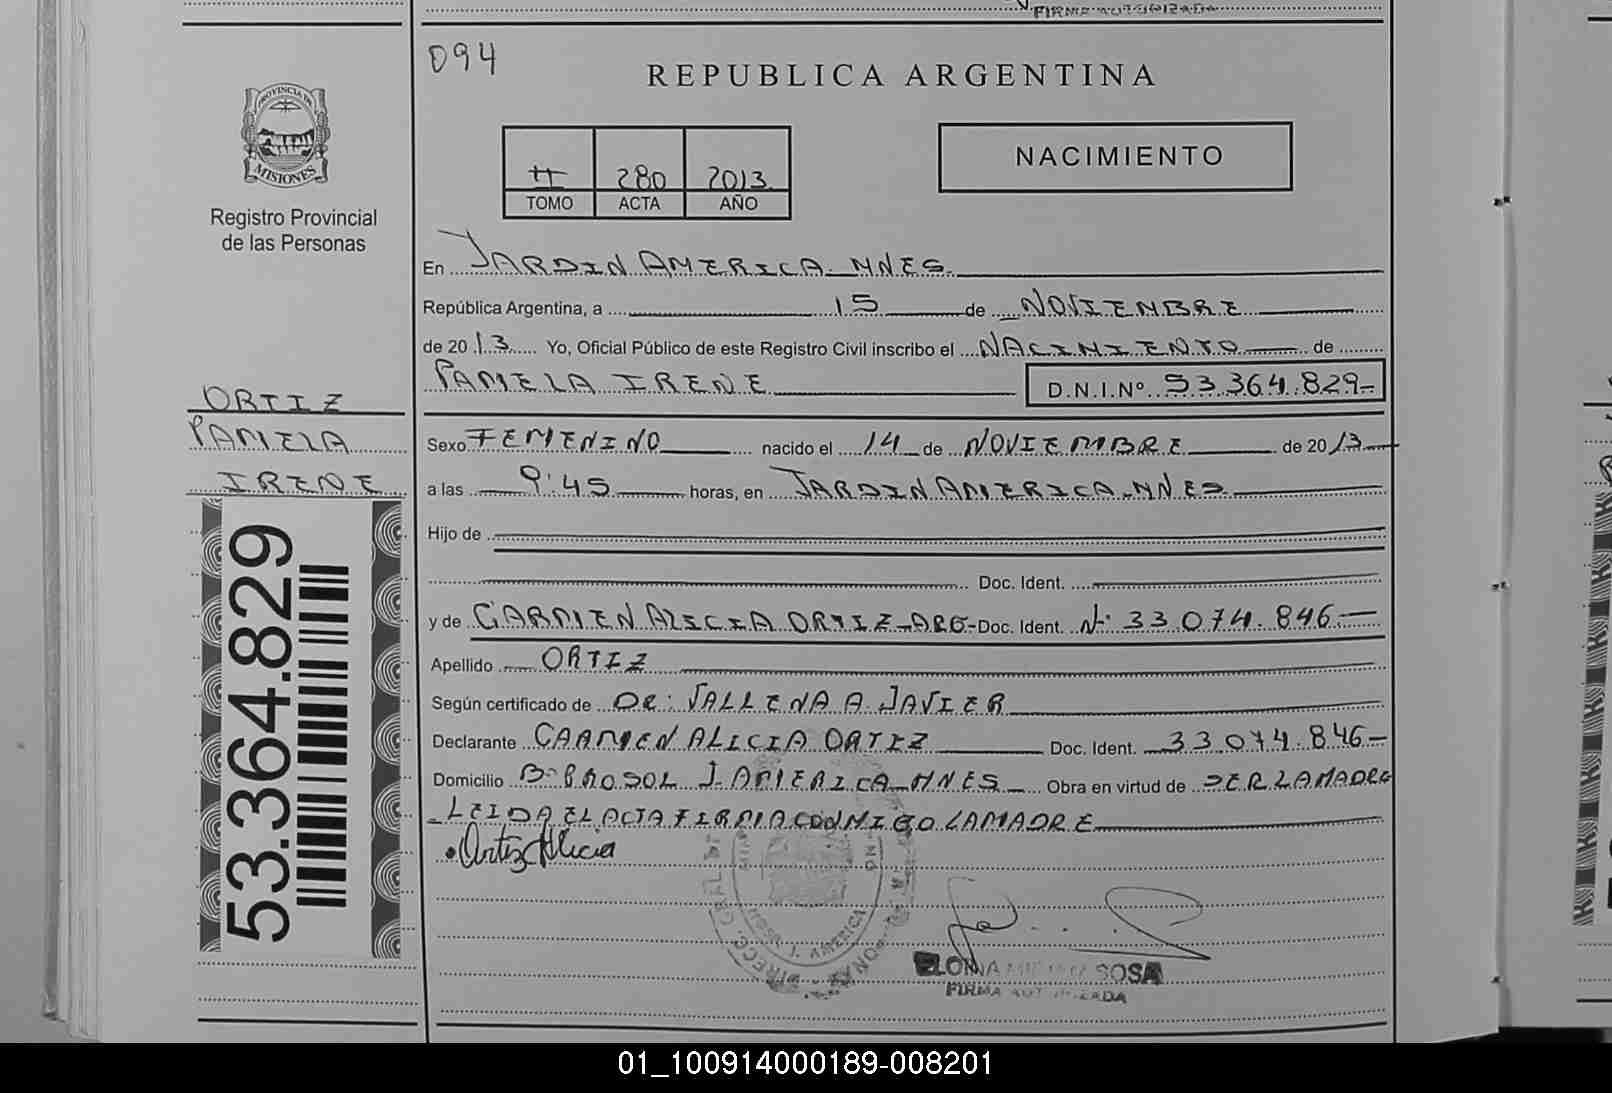 FIRMA AUTORIZADA
094
REPUBLICA ARGENTINA
PROVINCIA DE
MISIONES
Registro Provincial
de las Personas
II 280 2013
TOMO ACTA AÑO
NACIMIENTO
En JARDIN AMERICA. MNES.
República Argentina, a 15 de NOVIEMBRE
de 2013 Yo, Oficial Público de este Registro Civil inscribo el NACIMIENTO de
PAMELA IRENE D.N.I.Nº 53.364.829-
ORTIZ
PAMELA
IRENE
Sexo FEMENINO nacido el 14 de NOVIEMBRE de 2013
a las 9:45 horas, en JARDIN AMERICA. MNES.
Hijo de
Doc. Ident.
y de CARMEN ALICIA ORTIZ-ARG- Doc. Ident. Nº 33.074.846-
Apellido ORTIZ
Según certificado de DR: VALLENA A JAVIER
Declarante CARMEN ALICIA ORTIZ Doc. Ident. 33.074.846-
Domicilio Bº PROSOL J. AMERICA-MNES Obra en virtud de SER LA MADRE
LEIDA EL ACTA FIRMA CONMIGO LA MADRE
Ortiz Alicia
53.364.829
J. AMERICA
SOSA
FIRMA AUTORIZADA
01_100914000189-008201